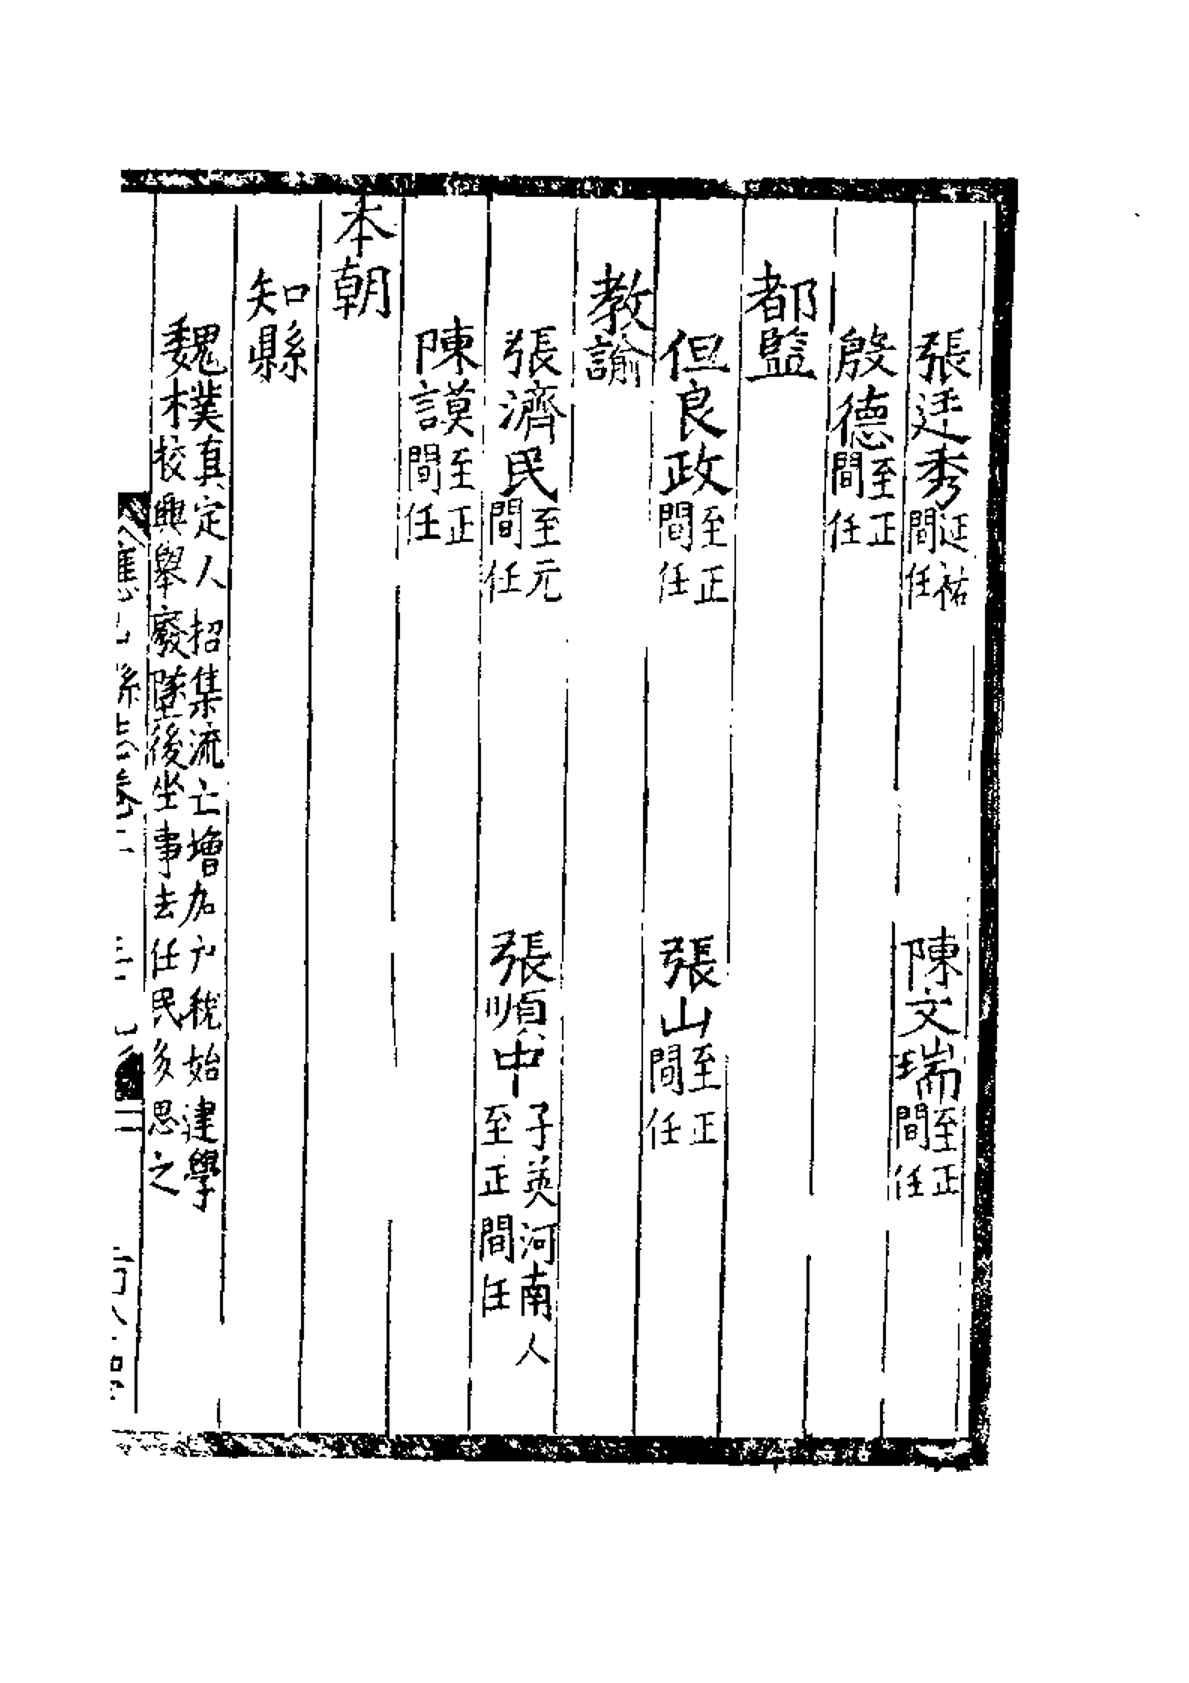 張廷秀延祐間任 陳文瑞至正間任
殷德至正間任
都監
但良政至正間任 張山至正間任
教諭
張濟民至元間任 張順中子英河南人至正間任
陳謨至正間任
本朝
知縣
魏樸真定人招集流亡增加户稅始建學
材校興舉廢墜後坐事去任民多思之
縣志卷